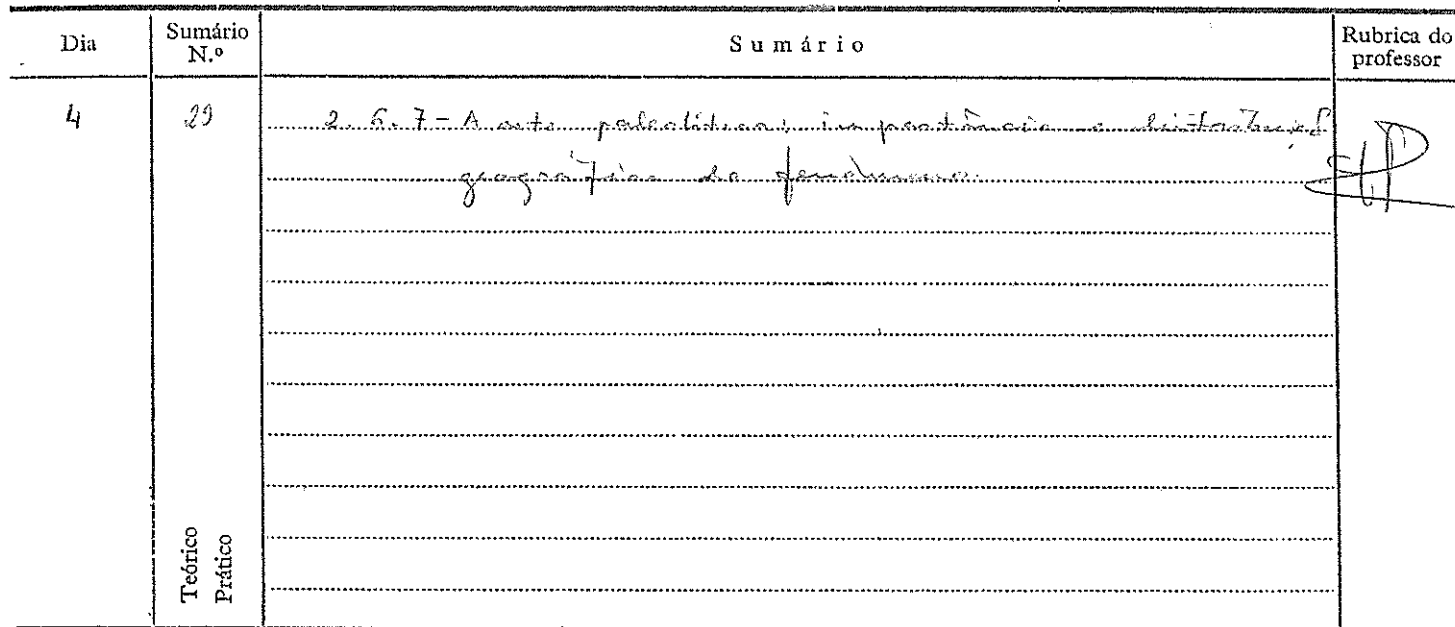 Dia
Sumário N.º
Sumário
Rubrica do professor
4
29
2.6.7 - A arte paleolítica; importância e distribuição
geográfica do fenómeno.
Teórico
Prático